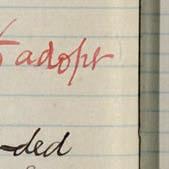 adopt
ded